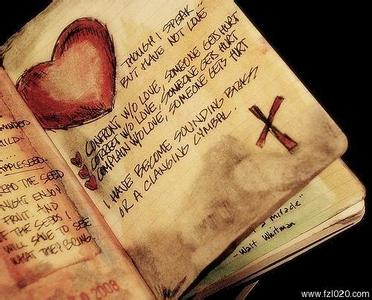 THOUGH I SPEAK
BUT HAVE NOT LOVE
CONFRONT W/O LOVE, SOMEONE GETS HURT
CORRECT W/O LOVE, SOMEONE GETS HURT
COMPLAIN W/O LOVE, SOMEONE GETS HURT
I HAVE BECOME SOUNDING BRASS
OR A CLANGING CYMBAL.
CHILD
APPLESEED
THE SEED
ENJOY
FRUIT AND
THE SEEDS I
WILL SAVE TO SEE
WHAT THEY BRING.
2008
a miracle"
- Walt Whitman
www.fzl020.com